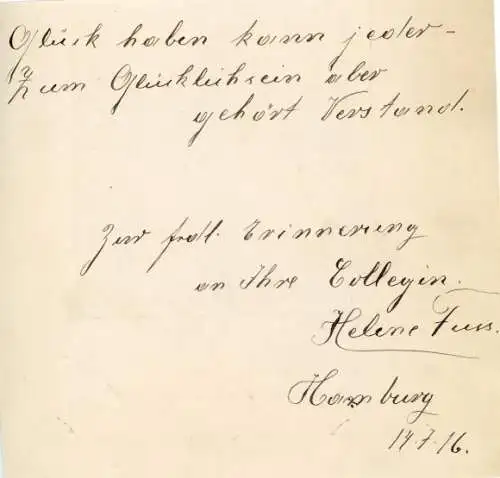 Glück haben kann jeder -
Zum Glücklichsein aber
gehört Verstand.
Zur frdl. Erinnerung
an Ihre Collegin.
Helene Fuss.
Hamburg
14.7.16.